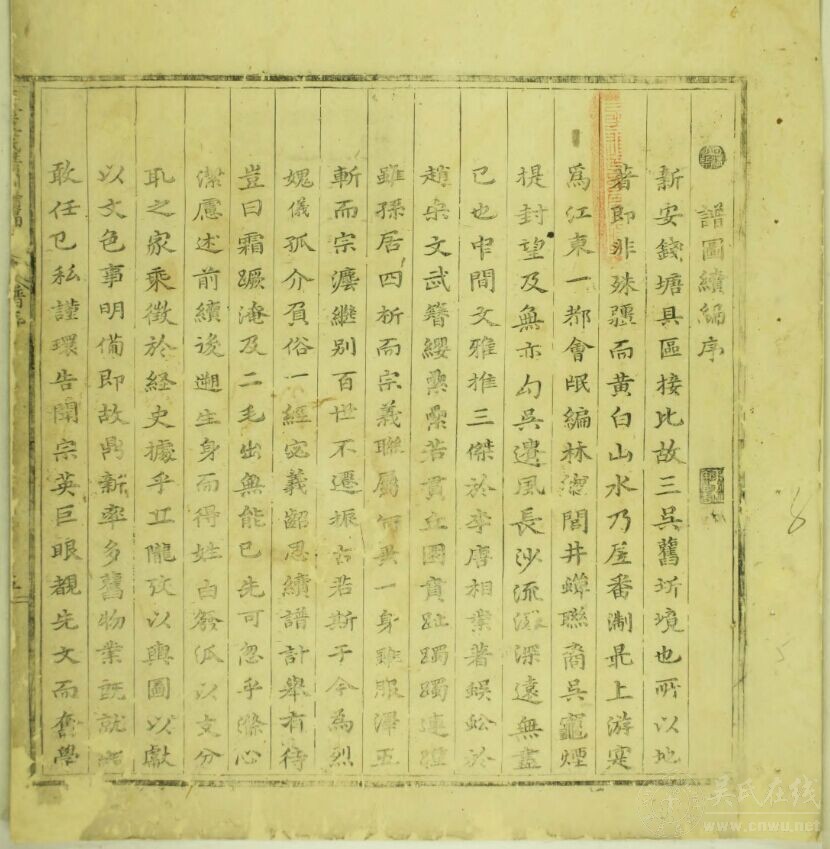 譜圖續編序
新安錢塘具區接比故三吳舊圻境也所以地
著即非殊疆而黄白山水乃居番淛最上游寔
爲江東一都會氓編林閭井蟬聯裔吳竈煙
提封望及無亦勾吳遺風長沙流深遠無盡
已也中間文雅推三傑於李唐相業著蜈蚣於
趙宋文武簪纓纍纍若貫丘園賁趾躅躅連
雖孫居四析而宗義聯屬何異一身雖服澤五
斬而宗灋繼别百世不遷振古若斯于今為烈
媿儀孤介負俗一經宓義韶思續譜計舉有待
豈曰霜蹶淹及二毛出無能已先可忽乎滌心
潔慮述前續後遡生身而得姓由發瓜以支分
氶之家乘徵於經史據乎丘隴攷以輿圖以獻
以文色事明備即故鼎新率多舊物業既就
敢任已私謹環告閣宗英巨眼覩先文而奮學
吴氏在线
www.cnwu.net